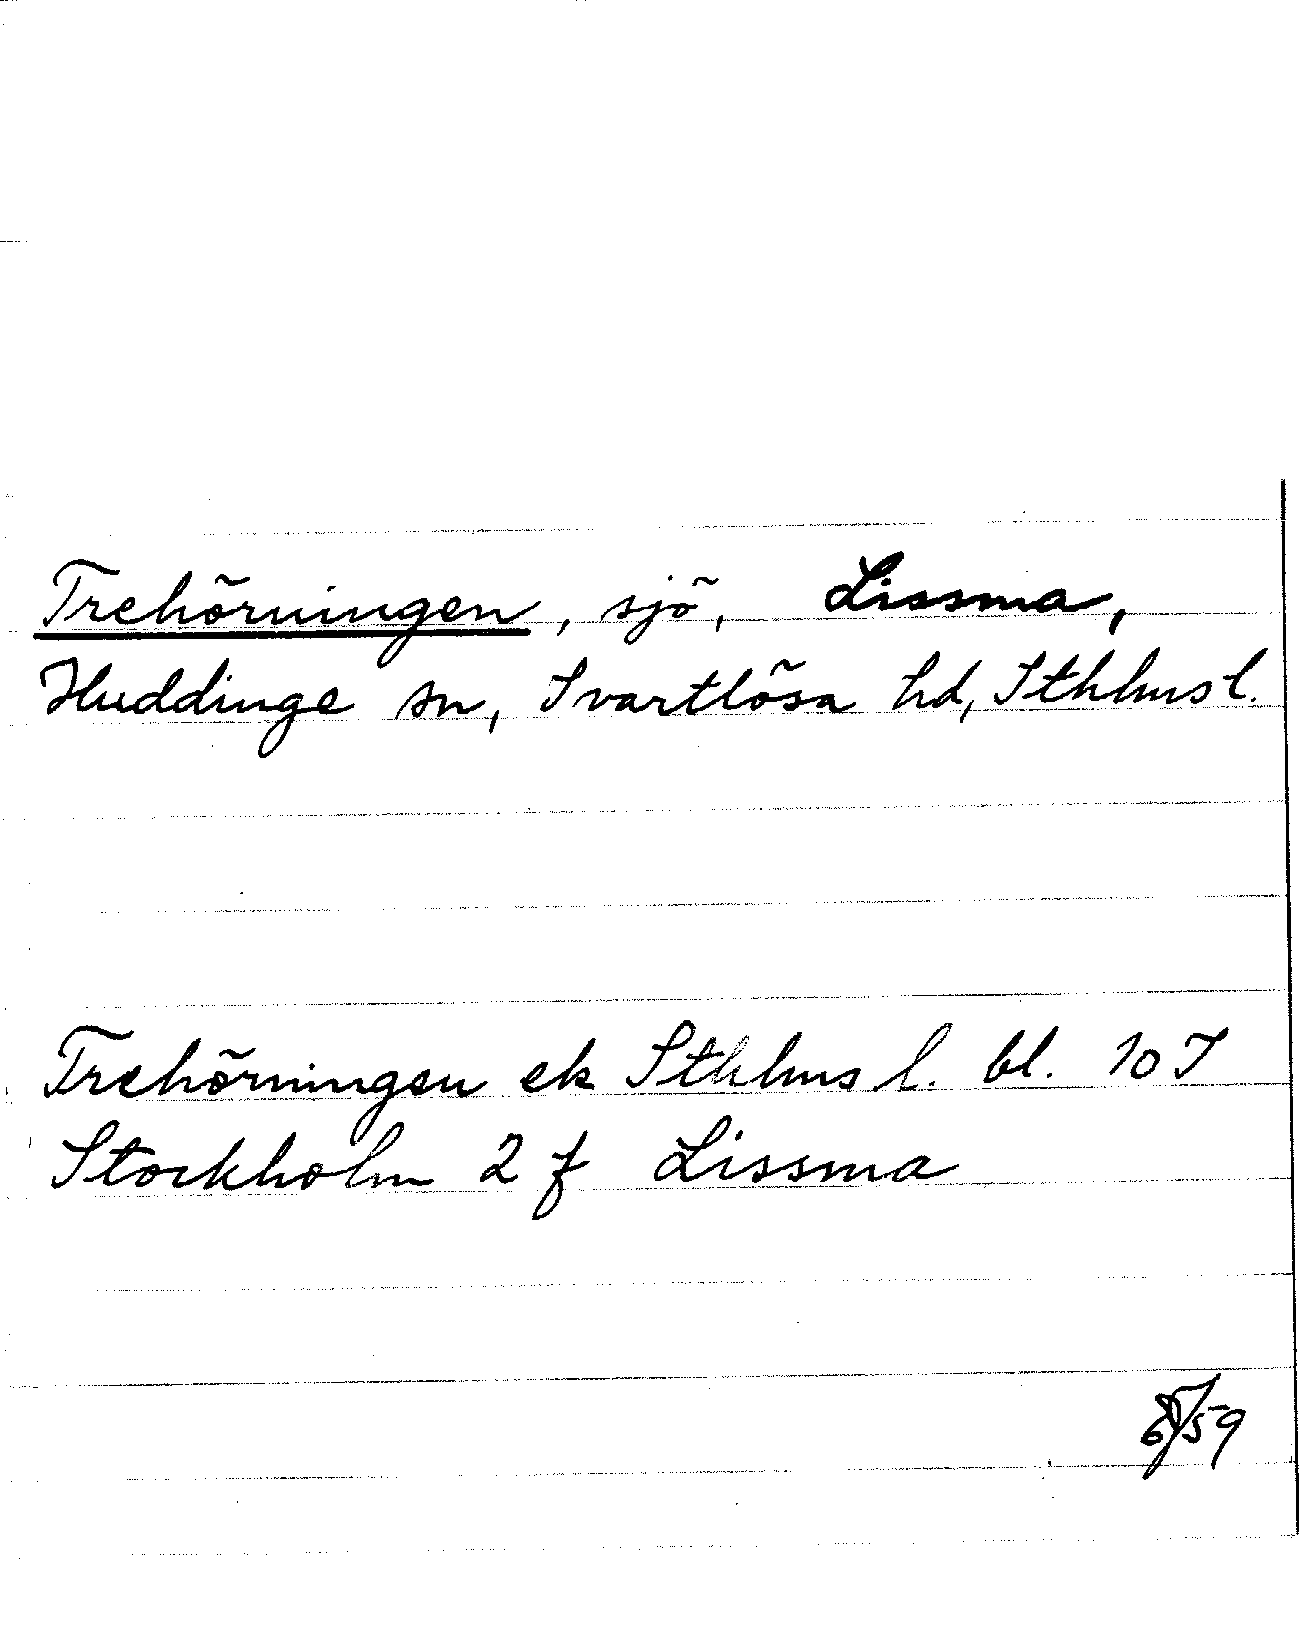 Trehörningen, sjö, Lissma,
Huddinge sn, Svartlösa hd, Sthlms l.
Trehörningen ek Sthlms l. bl. 10 I
Stockholm 2 f Lissma
/59